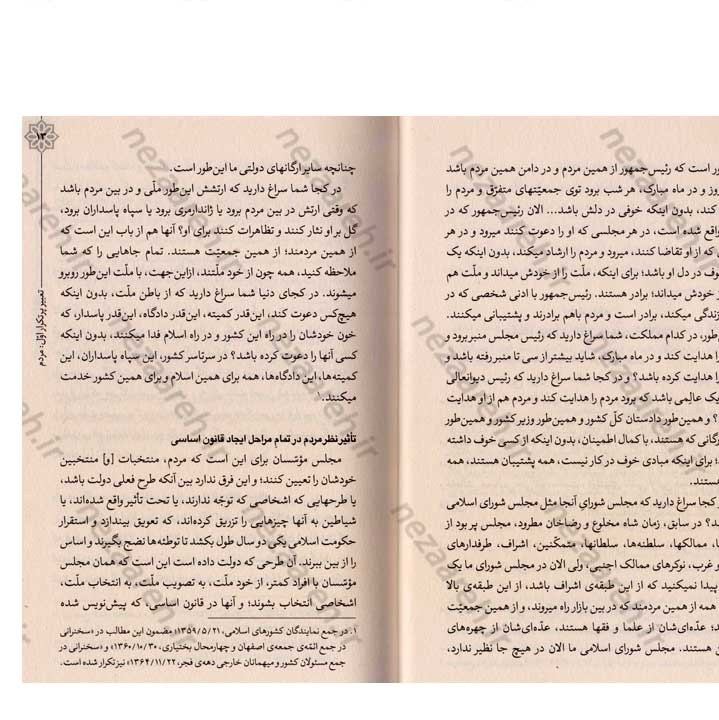 ور است که رئیس‌جمهور از همین مردم و در دامن همین مردم باشد
روز و در ماه مبارک، هر شب برود توی جمعیّتهای متفرّق و مردم را
کند، بدون اینکه خوفی در دلش باشد... الان رئیس‌جمهور که در
واقع شده است، در هر مجلسی که او را دعوت کنند میرود و در هر
که از او تقاضا کنند، میرود و مردم را ارشاد میکند، بدون اینکه یک
وف در دل او باشد؛ برای اینکه، ملّت را از خودش میداند و ملّت هم
از خودش میداند؛ برادر هستند. رئیس‌جمهور با ادنی شخصی که در
زندگی میکند، برادر است و مردم باهم برادرند و پشتیبانی میکنند.
طور، در کدام مملکت، شما سراغ دارید که رئیس مجلس منبر برود و
را هدایت کند و در ماه مبارک، شاید بیشتر از سی تا منبر رفته باشد و
را هدایت کرده باشد؟ و در کجا شما سراغ دارید که رئیس دیوانعالی
یک عالِمی باشد که برود مردم را هدایت کند و مردم هم از او هدایت
؟ و همین‌طور دادستان کلّ کشور و همین‌طور وزیر کشور و همین‌طور
رگانی که هستند، با کمال اطمینان، بدون اینکه از کسی خوف داشته
؛ برای اینکه مبادی خوف در کار نیست، همه پشتیبان هستند، همه
هستند.
کجا سراغ دارید که مجلس شورایِ آنجا مثل مجلس شورای اسلامی
د؟ در سابق، زمان شاه مخلوع و رضاخان مطرود، مجلس پر بود از
ها، ممالکها، سلطنه‌ها، سلطانها، متمکّنین، اشراف، طرفدارهای
و غرب، نوکرهای ممالک اجنبی، ولی الان در مجلس شورای ما یک
پیدا نمیکنید که از این طبقه‌ی اشراف باشد، از این طبقه‌ی بالا
همه از همین مردمند که در بین بازار راه میروند، و از همین جمعیّت
ند؛ عدّه‌ای‌شان از علما و فقها هستند، عدّه‌ای‌شان از چهره‌های
ن هستند. مجلس شورای اسلامی ما الان در هیچ جا نظیر ندارد،
۱۳
تعبیر پرتکرار اوّل: مردم
چنانچه سایر ارگانهای دولتی ما این‌طور است.
در کجا شما سراغ دارید که ارتشش این‌طور ملّی و در بین مردم باشد
که وقتی ارتش در بین مردم برود یا ژاندارمری برود یا سپاه پاسداران برود،
گل بر او نثار کنند و تظاهرات کنند برای او؟ آنها هم از باب این است که
از همین مردمند؛ از همین جمعیّت هستند. تمام جاهایی را که شما
ملاحظه کنید، همه چون از خود ملّتند، ازاین‌جهت، با ملّت این‌طور روبرو
میشوند. در کجای دنیا شما سراغ دارید که از باطن ملّت، بدون اینکه
هیچ‌کس دعوت کند، این‌قدر کمیته، این‌قدر دادگاه، این‌قدر پاسدار، که
خون خودشان را در راه این کشور و در راه اسلام فدا میکنند، بدون اینکه
کسی آنها را دعوت کرده باشد؟ در سرتاسر کشور، این سپاه پاسداران، این
کمیته‌ها، این دادگاه‌ها، همه برای همین اسلام و برای همین کشور خدمت
میکنند.۱
تأثیر نظر مردم در تمام مراحل ایجاد قانون اساسی
مجلس مؤسّسان برای این است که مردم، منتخبات [و] منتخبین
خودشان را تعیین کنند؛ و این فرق ندارد بین آنکه طرح فعلی دولت باشد،
یا طرحهایی که اشخاصی که توجّه ندارند، یا تحت تأثیر واقع شده‌اند، یا
شیاطین به آنها چیزهایی را تزریق کرده‌اند، که تعویق بیندازد و استقرار
حکومت اسلامی یکی دو سال طول بکشد تا توطئه‌ها نضج بگیرند و اساس
را از بین ببرند. آن طرحی که دولت داده است این است که همان مجلس
مؤسّسان با افراد کمتر، از خود ملّت، به تصویب ملّت، به انتخاب ملّت،
اشخاصی انتخاب بشوند؛ و آنها در قانون اساسی، که پیش‌نویس شده
۱. در جمع نمایندگان کشورهای اسلامی، ۱۳۵۹/۵/۲۱؛ مضمون این مطالب در «سخنرانی
در جمع ائمّه‌ی جمعه‌ی اصفهان و چهارمحال بختیاری، ۱۳۶۰/۱۰/۳۰» و «سخنرانی در
جمع مسئولان کشور و میهمانان خارجی دهه‌ی فجر، ۱۳۶۴/۱۱/۲۲» نیز تکرار شده است.
nezasreh.ir